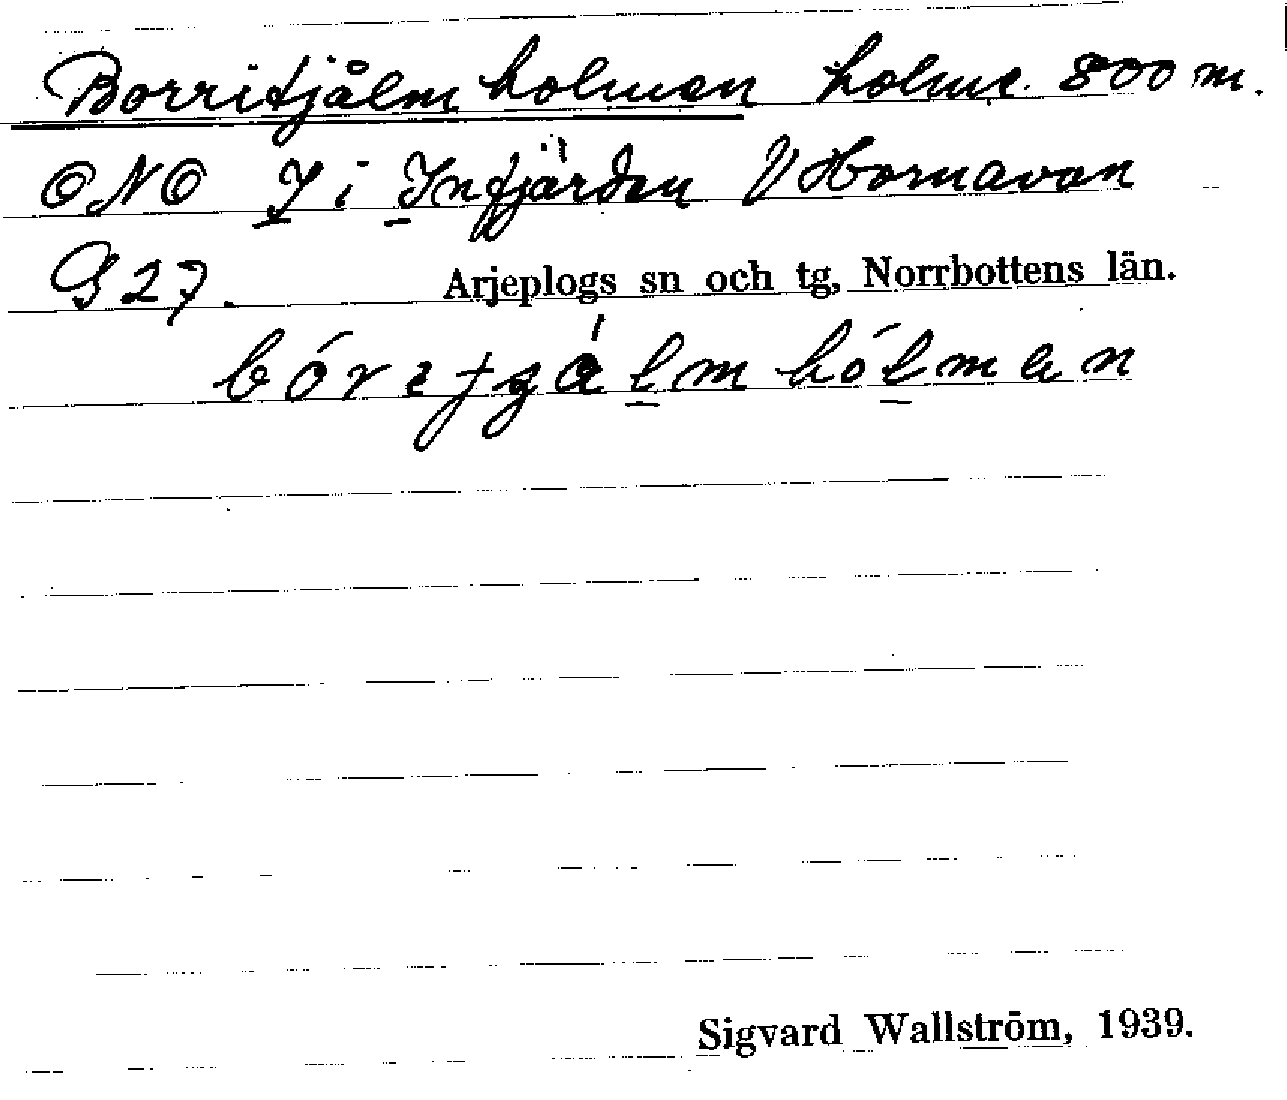 Borritjålmholmen holme. 800 m.
ONO I i Infjärden V Hornavan
G 27. Arjeplogs sn och tg, Norrbottens län.
Sigvard Wallström, 1939.